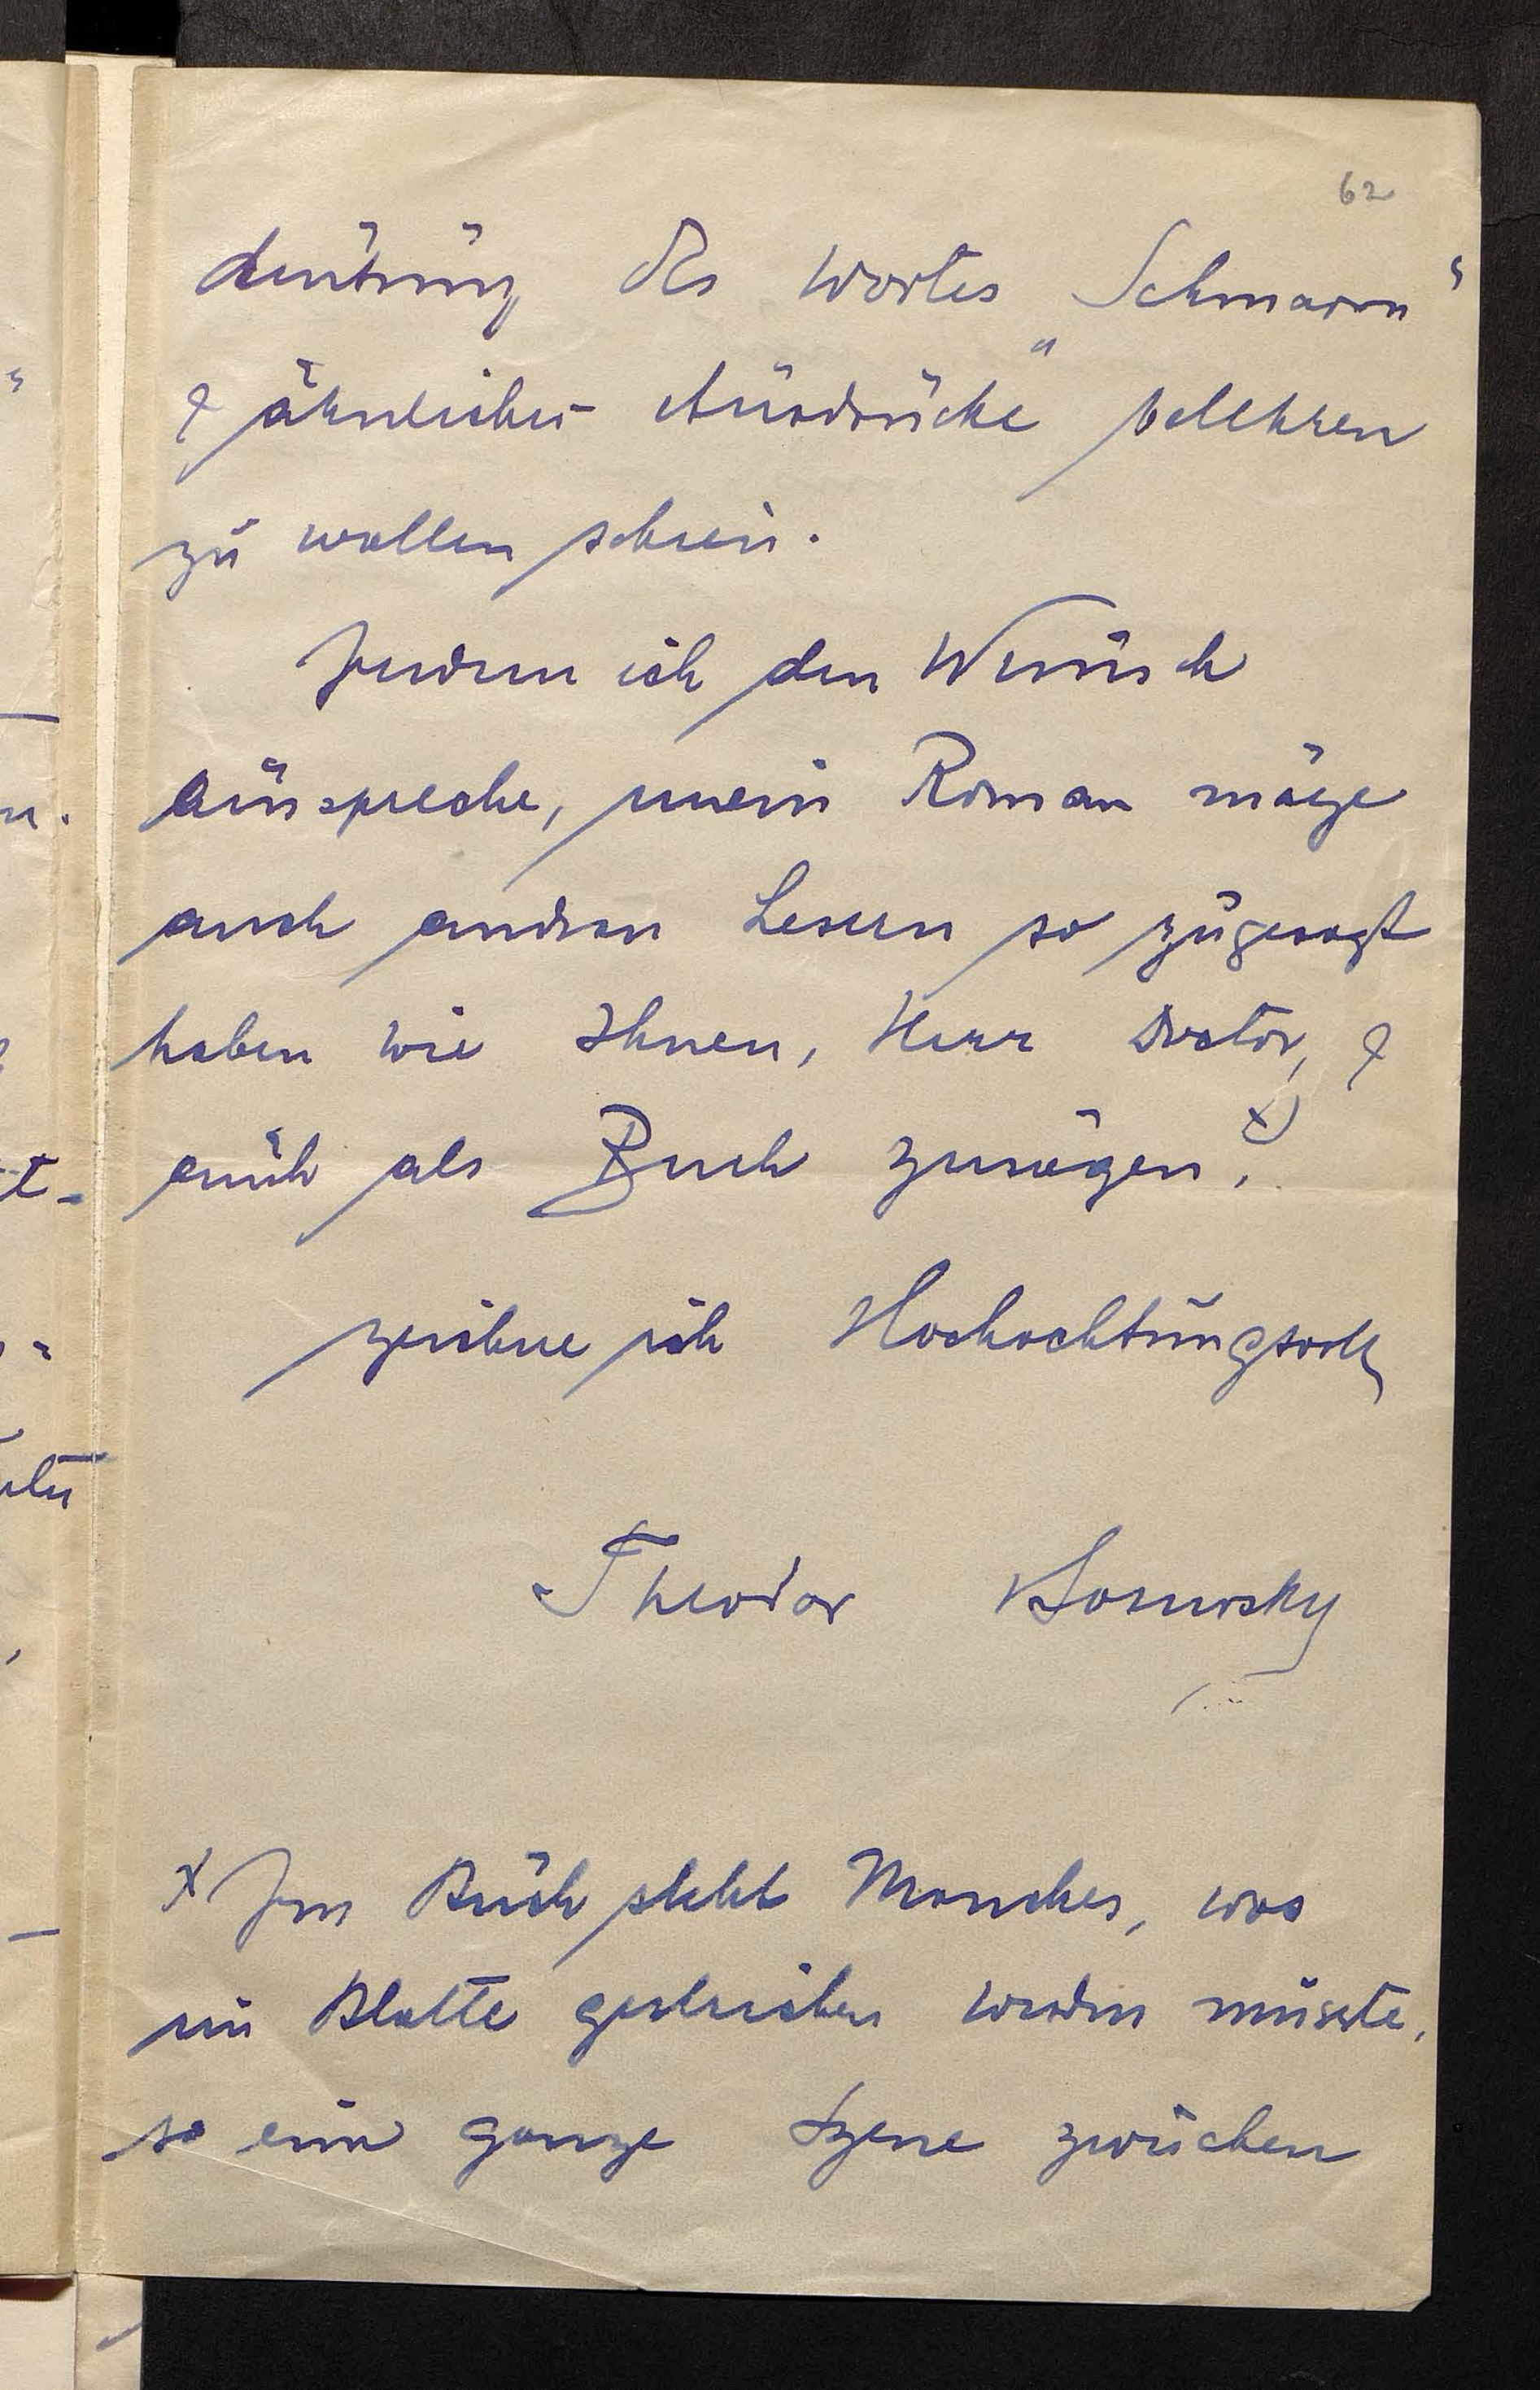 62
deutung des Wortes „Schmarrn“
& ähnlicher Ausdrücke belehren
zu wollen schien.
Indem ich den Wunsch
ausspreche, mein Roman möge
auch andren Lesern so zugesagt
haben wie Ihnen, Herr Doctor, &
auch als Buch zusagen, x)
zeichne ich Hochachtungsvoll
Theodor
x Im Buch steht Manches, was
im Blatte gestrichen werden müsste,
so eine ganze Szene zwischen